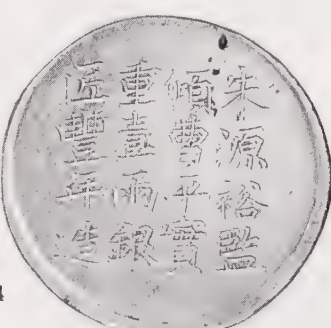 朱源裕監
傾曹平實
重壹兩銀
匠豐年造